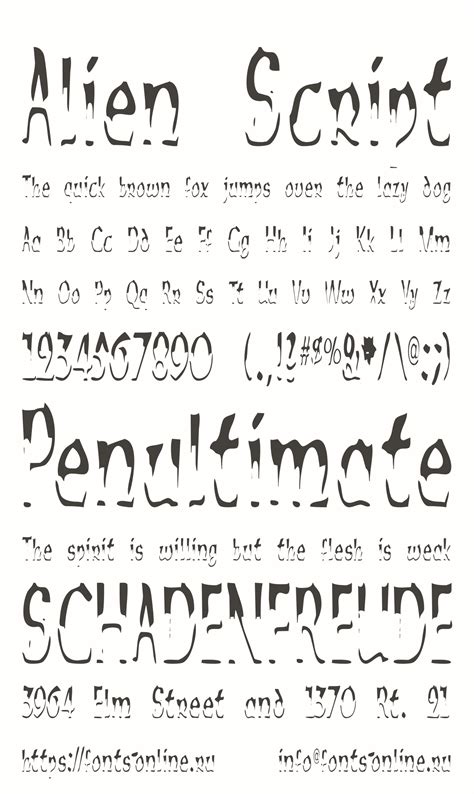 Alien Script
The quick brown fox jumps over the lazy dog
Aa Bb Cc Dd Ee Ff Gg Hh Ii Jj Kk Ll Mm
Nn Oo Pp Qq Rr Ss Tt Uu Vv Ww Xx Yy Zz
1234567890 (.,!?#$%&*/\@:;)
Penultimate
The spirit is willing but the flesh is weak
SCHADENFREUDE
3964 Elm Street and 1370 Rt. 21
https://fontsonline.ru info@fontsonline.ru